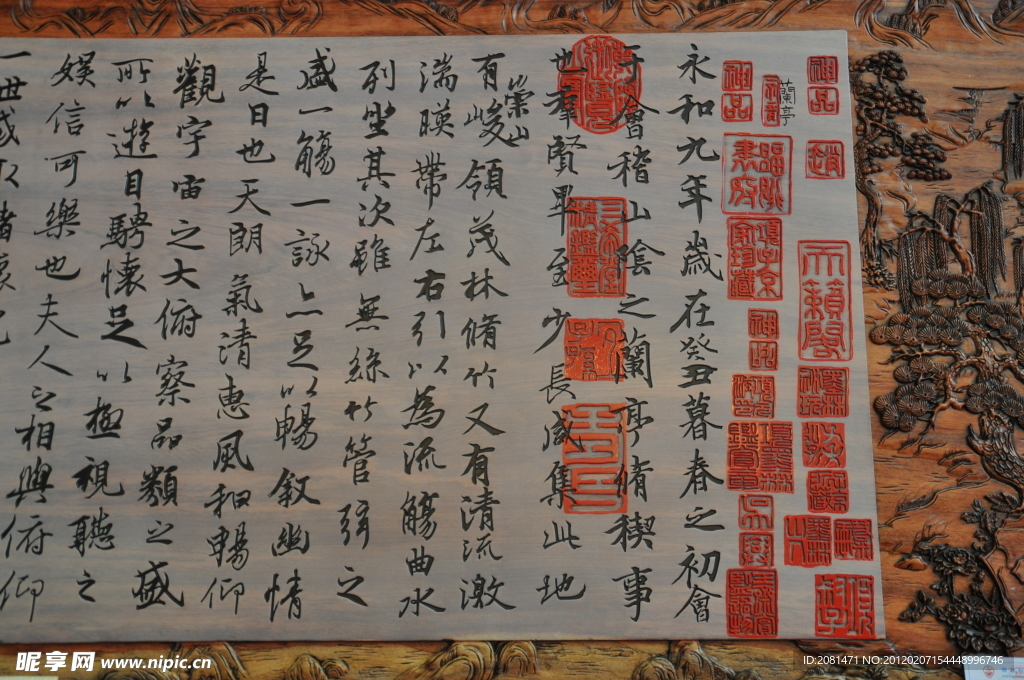 神品
趙
天籟閣
蘭亭
神品
永和九年歲在癸丑暮春之初會
于會稽山陰之蘭亭脩禊事
也羣賢畢至少長咸集此地
崇山
有峻領茂林脩竹又有清流激
湍暎帶左右引以為流觴曲水
列坐其次雖無絲竹管弦之
盛一觴一詠亦足以暢敘幽情
是日也天朗氣清惠風和暢仰
觀宇宙之大俯察品類之盛
所以遊目騁懷足以極視聽之
娛信可樂也夫人之相與俯仰
一世或取諸懷
昵享网 www.nipic.cn
ID:2081471 NO:20120207154448996746